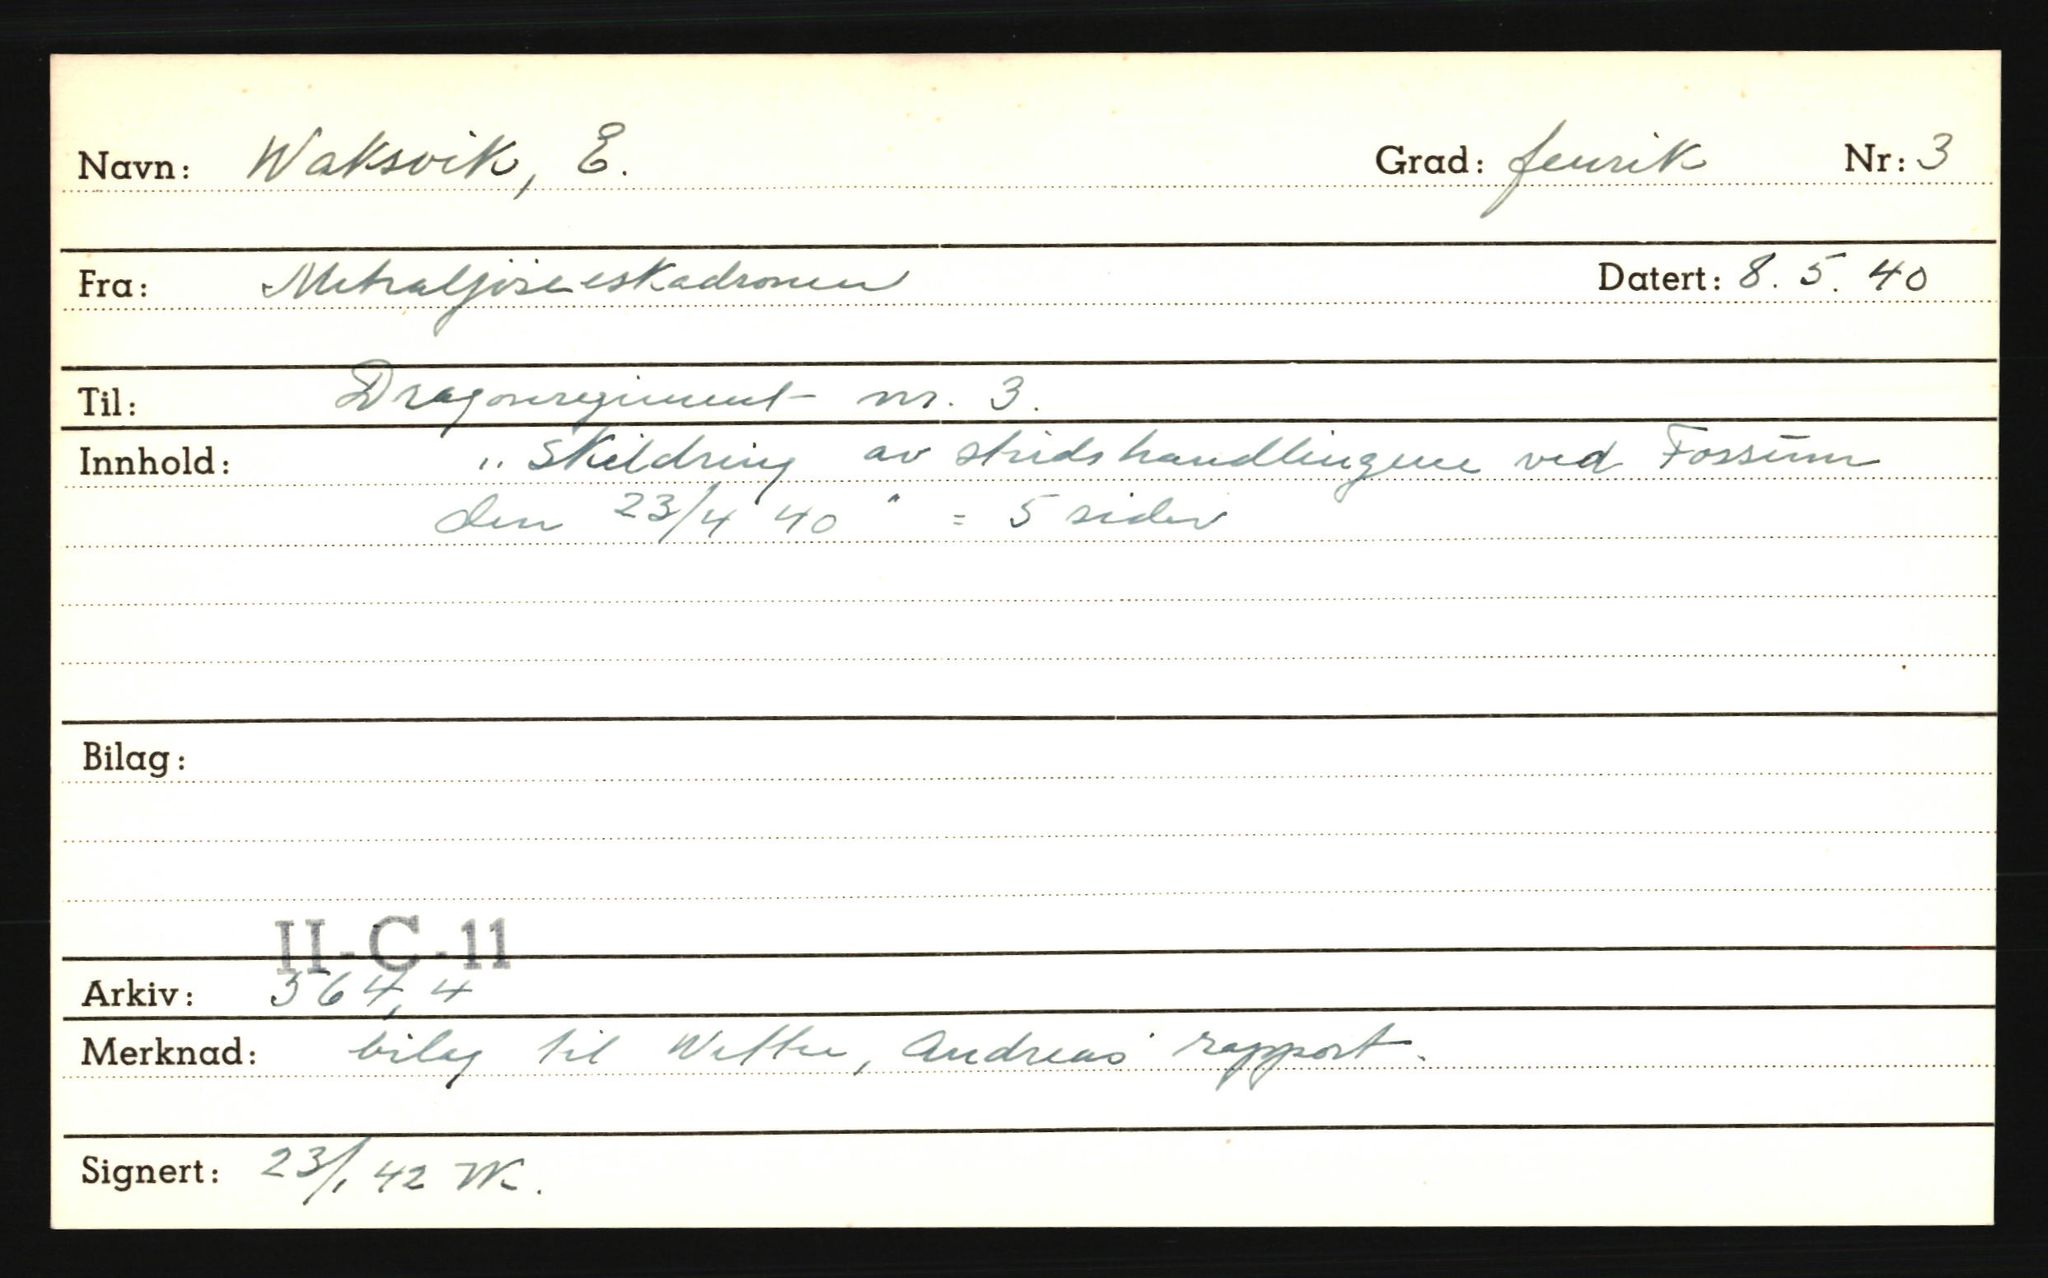 Navn: Waksvik, E. Grad: fenrik Nr: 3
Fra: Mitraljøseeskadronen Datert: 8. 5. 40
Til: Dragonregiment nr. 3.
Innhold: „Skildring av stridshandlingene ved Fossum
den 23/4 40" = 5 sider
Bilag:
II-C-11
Arkiv: 564,4
Merknad: bilag til Andreas' rapport.
Signert: 23/1 42